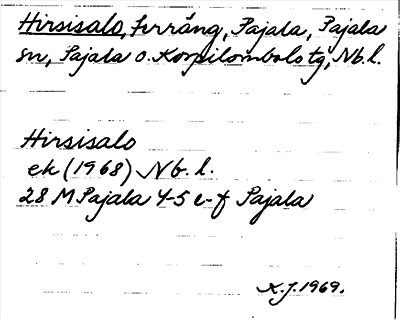 Hirsisalo, terräng, Pajala, Pajala
sn, Pajala o. Korpilombolo tg, Nb.l.
Hirsisalo
ek (1968) Nb.l.
28 M Pajala 4-5 e-f Pajala
K.J. 1969.